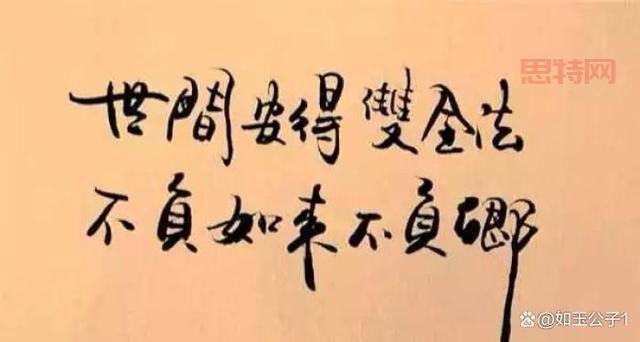 思特网
世間安得雙全法
不負如来不負卿
@如玉公子1